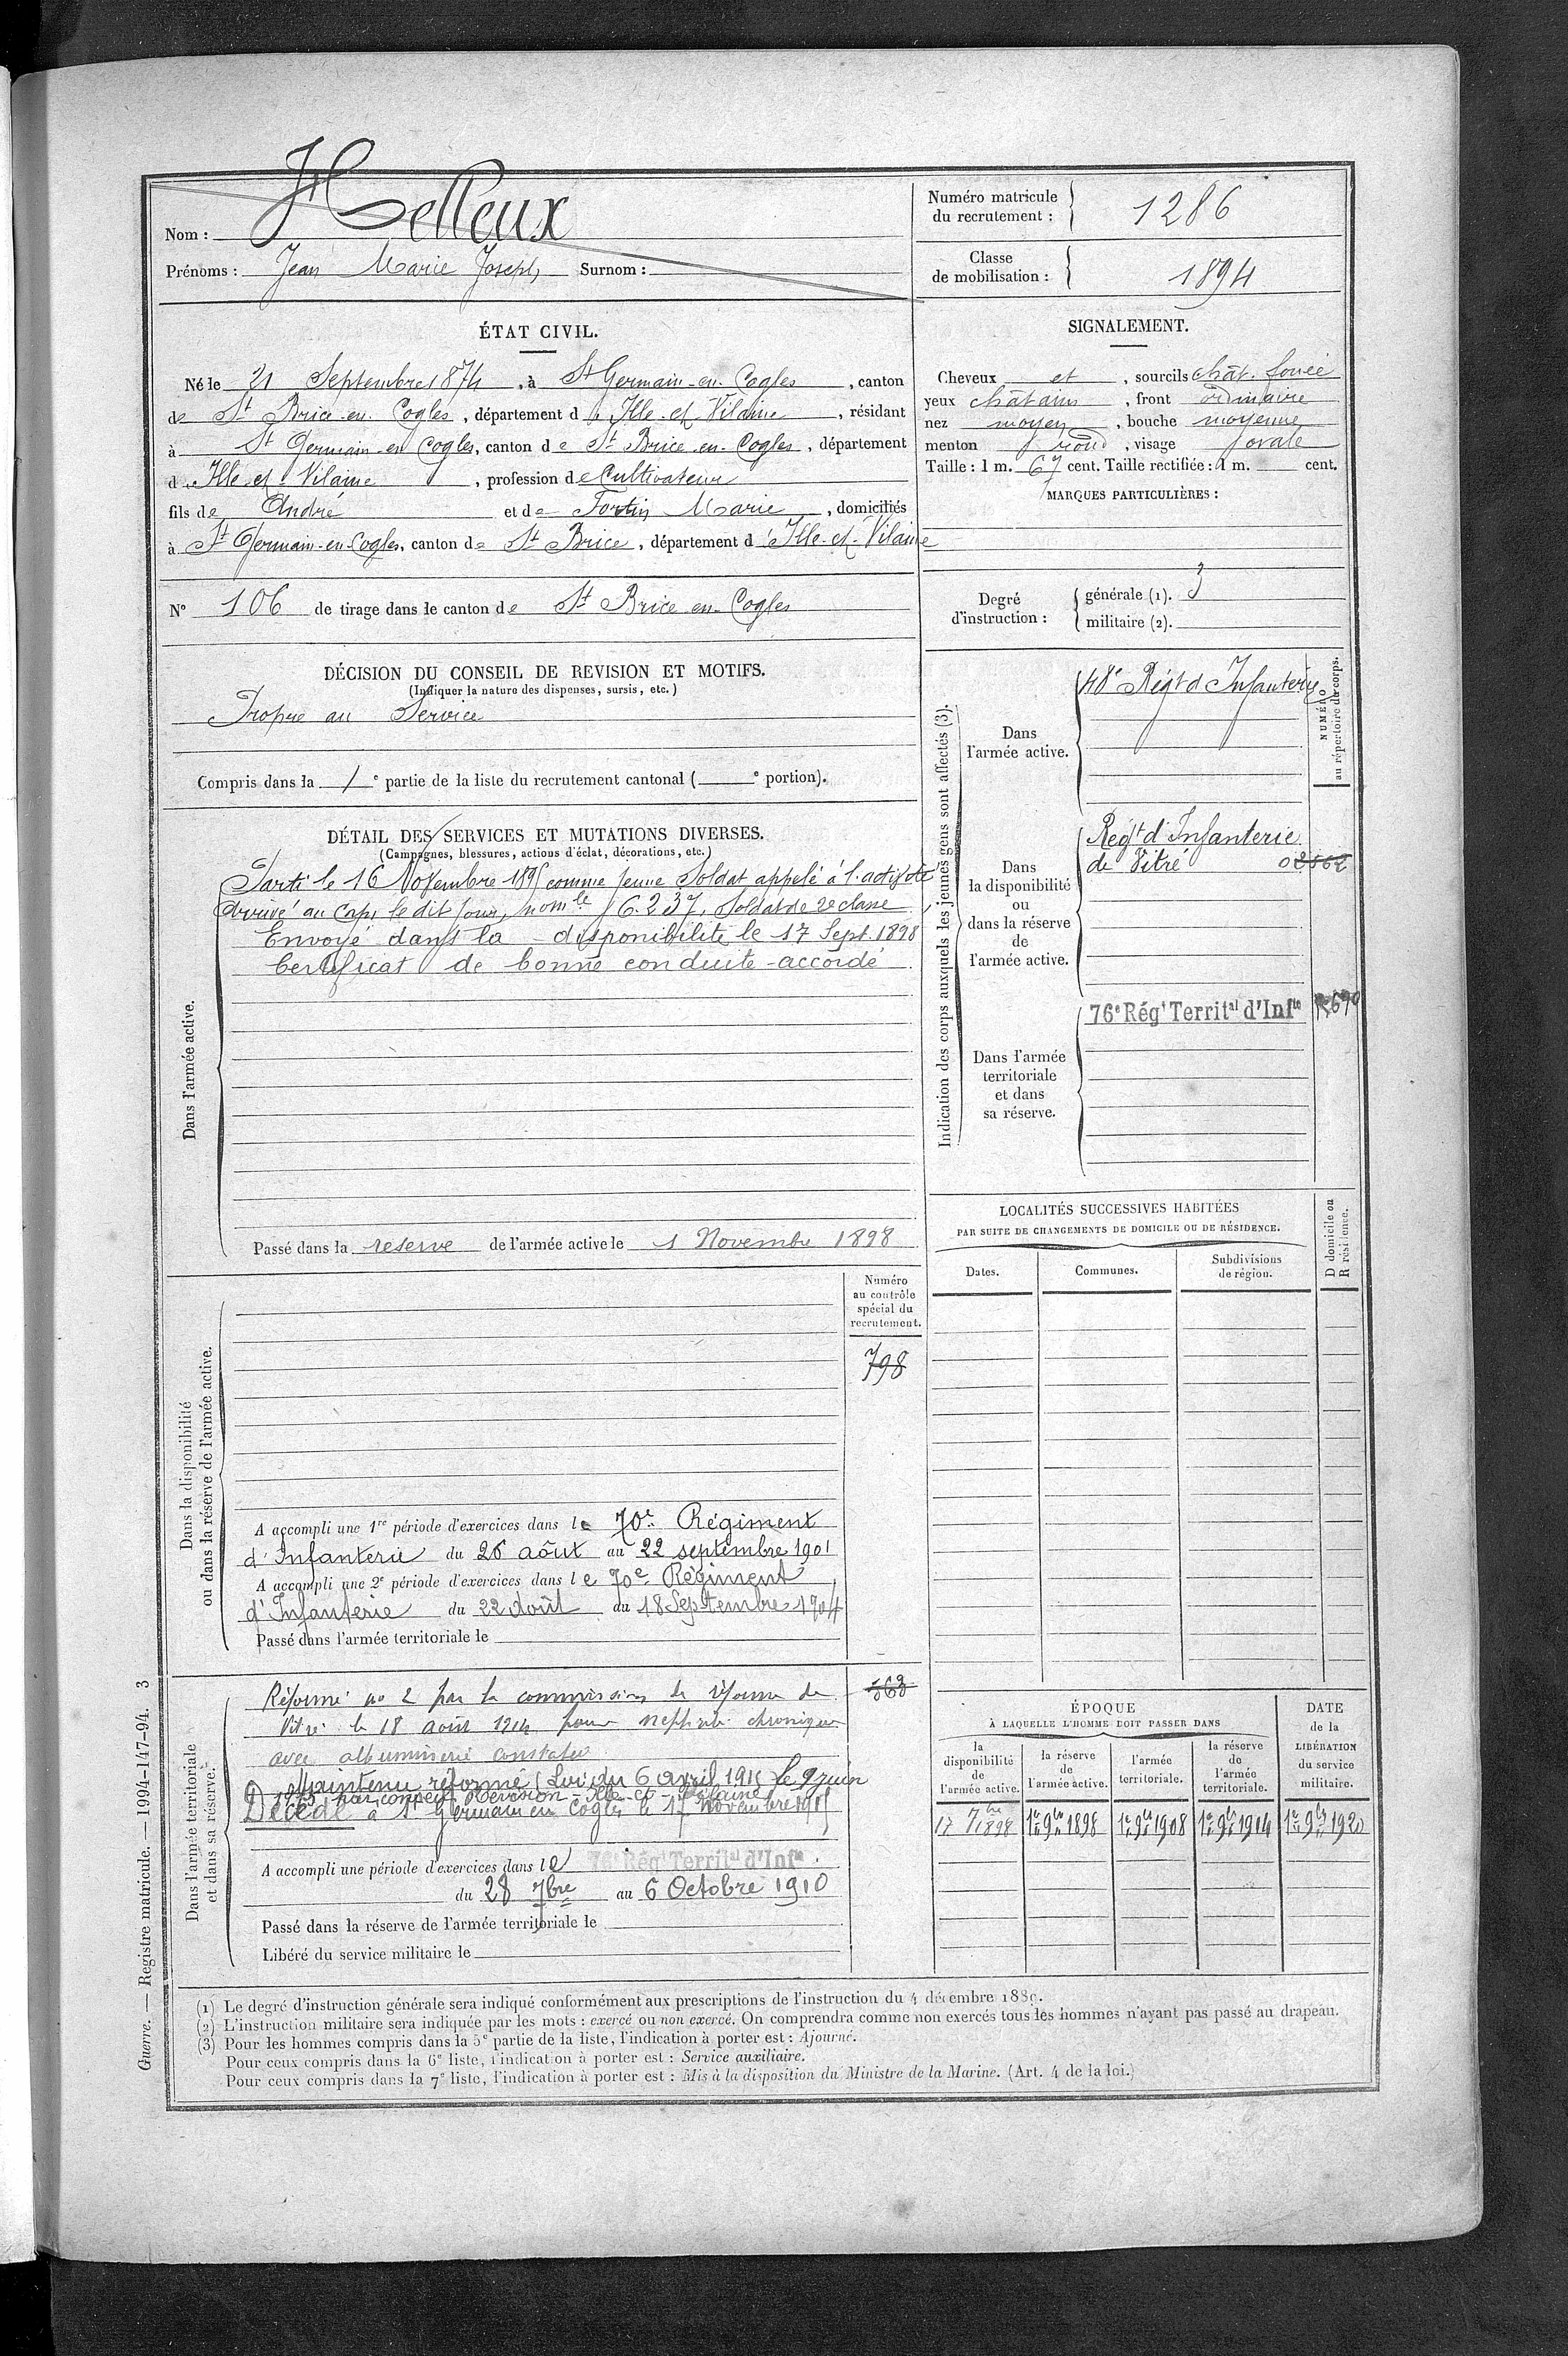 Nom : Helleux
Prénoms : Jean Marie Joseph Surnom :
Numéro matricule du recrutement : 1286
Classe de mobilisation : 1894
ÉTAT CIVIL.
Né le 21 Septembre 1874, à St Germain-en-Cogles, canton
de St Brice-en-Cogles, département d'Ille-et-Vilaine, résidant
à St Germain-en Cogles, canton de St Brice-en-Cogles, département
d'Ille-et-Vilaine, profession de Cultivateur
fils de André et de Fortin Marie, domiciliés
à St Germain-en-Cogles, canton de St Brice, département d'Ille-et-Vilaine
N° 106 de tirage dans le canton de St Brice-en-Cogles
SIGNALEMENT.
Cheveux et , sourcils chât. foncé
yeux châtains, front ordinaire
nez moyen, bouche moyenne
menton rond, visage ovale
Taille : 1 m. 67 cent. Taille rectifiée : 1 m. cent.
MARQUES PARTICULIÈRES :
Degré d'instruction : générale (1). 3
militaire (2).
DÉCISION DU CONSEIL DE REVISION ET MOTIFS.
(Indiquer la nature des dispenses, sursis, etc.)
Propre au Service
Compris dans la 1e partie de la liste du recrutement cantonal ( e portion).
DÉTAIL DES SERVICES ET MUTATIONS DIVERSES.
(Campagnes, blessures, actions d'éclat, décorations, etc.)
Dans l'armée active.
Parti le 16 Novembre 1895 comme jeune Soldat appelé à l'activité
Arrivé au Corps le dit jour, nom le 6.237, Soldat de 2e classe
Envoyé dans la disponibilité le 17 Sept. 1898
Certificat de bonne conduite accordé
Passé dans la réserve de l'armée active le 1 Novembre 1898
Indication des corps auxquels les jeunes gens sont affectés (3).
NUMÉRO au répertoire du corps.
Dans l'armée active.
48e Régt d'Infanterie
Dans la disponibilité ou dans la réserve de l'armée active.
Régt d'Infanterie
de Vitré
Dans l'armée territoriale et dans sa réserve.
76e Régt Territal d'Infie
LOCALITÉS SUCCESSIVES HABITÉES
PAR SUITE DE CHANGEMENTS DE DOMICILE OU DE RÉSIDENCE.
Dates. Communes. Subdivisions de région. D domicile ou R résidence.
Dans la disponibilité ou dans la réserve de l'armée active.
Numéro au contrôle spécial du recrutement.
798
A accompli une 1re période d'exercices dans le 70e Régiment
d'Infanterie du 26 août au 22 septembre 1901
A accompli une 2e période d'exercices dans le 70e Régiment
d'Infanterie du 22 Août au 18 Septembre 1904
Passé dans l'armée territoriale le
Dans l'armée territoriale et dans sa réserve.
Réformé no 2 par la commission de réforme de
Vitré le 18 août 1914 pour néphrite chronique
avec albuminerie constatée
Maintenu réformé (Loi du 6 avril 1915) le 9 juin
1915 par conseil Révision Ille-et-Vilaine
Décédé à St Germain en Cogles le 17 Novembre 1915
A accompli une période d'exercices dans le 76e Régt Territal d'Infie.
du 28 7bre au 6 Octobre 1910
Passé dans la réserve de l'armée territoriale le
Libéré du service militaire le
ÉPOQUE
À LAQUELLE L'HOMME DOIT PASSER DANS
la disponibilité de l'armée active.
la réserve de l'armée active.
l'armée territoriale.
la réserve de l'armée territoriale.
DATE de la LIBÉRATION du service militaire.
17 7bre 1898 1er 9bre 1898 1er 9bre 1908 1er 9bre 1914 1er 9bre 1920
(1) Le degré d'instruction générale sera indiqué conformément aux prescriptions de l'instruction du 4 décembre 1889.
(2) L'instruction militaire sera indiquée par les mots : exercé ou non exercé. On comprendra comme non exercés tous les hommes n'ayant pas passé au drapeau.
(3) Pour les hommes compris dans la 5e partie de la liste, l'indication à porter est : Ajourné.
Pour ceux compris dans la 6e liste, l'indication à porter est : Service auxiliaire.
Pour ceux compris dans la 7e liste, l'indication à porter est : Mis à la disposition du Ministre de la Marine. (Art. 4 de la loi.)
Guerre. — Registre matricule. — 1994-147-94. 3